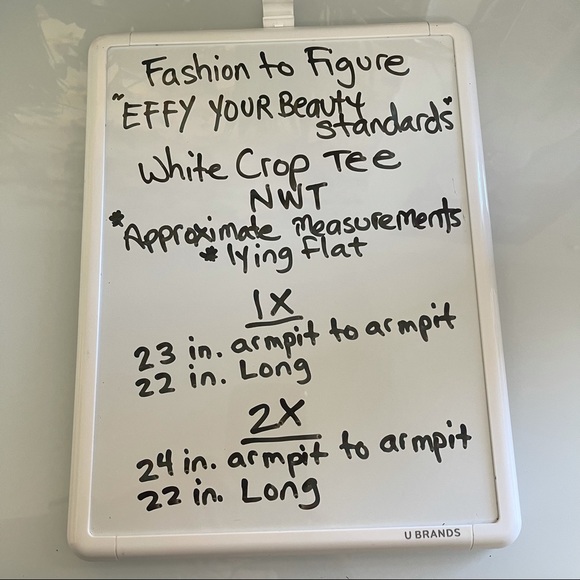 Fashion to Figure
"EFFY YOUR Beauty
standards"
White Crop Tee
NWT
*Approximate Measurements
*lying flat
1X
23 in. armpit to armpit
22 in. Long
2X
24 in. armpit to armpit
22 in. Long
U BRANDS